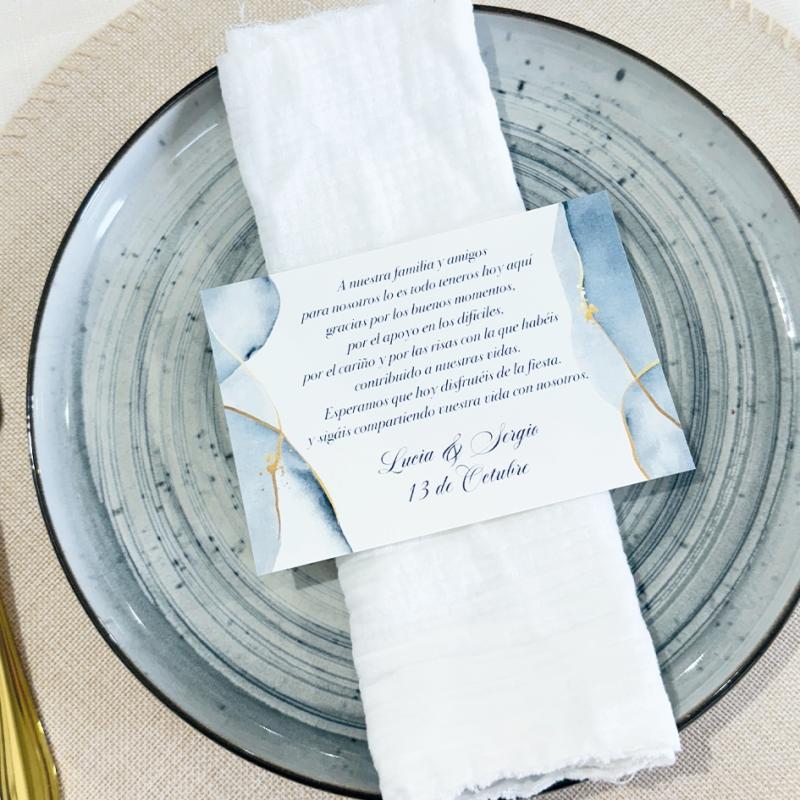 A nuestra familia y amigos
para nosotros lo es todo teneros hoy aquí
gracias por los buenos momentos,
por el apoyo en los difíciles,
por el cariño y por las risas con la que habéis
contribuido a nuestras vidas.
Esperamos que hoy disfrutéis de la fiesta.
y sigáis compartiendo vuestra vida con nosotros.
Lucia & Sergio
13 de Octubre